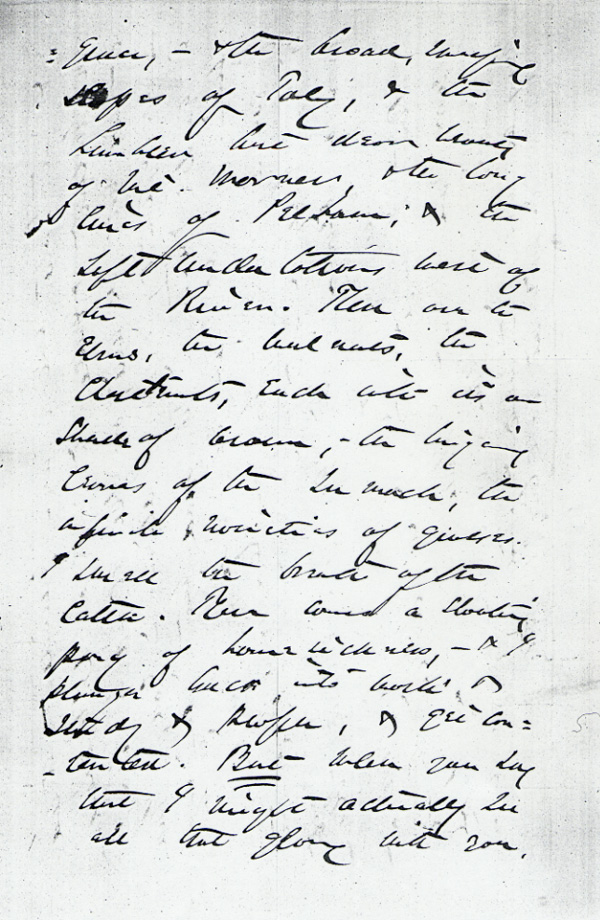 =grace, - & the broad, sweeping
slopes of Toby, & the
sombre but dear beauty
of Mt. Warner, & the long
lines of Pelham; & the
soft undulations west of
the River. Then are the
Elms, the walnuts, the
Chestnuts, each with its own
shade of brown, - the
crowns of the sumach, the
infinite varieties of grasses.
I smell the breath of the
cattle. Then comes a shooting
pang of homesickness, - & I
plunge back into work &
study & people, & get con=
=tented. But when you say
that I might actually see
all that glory with you,